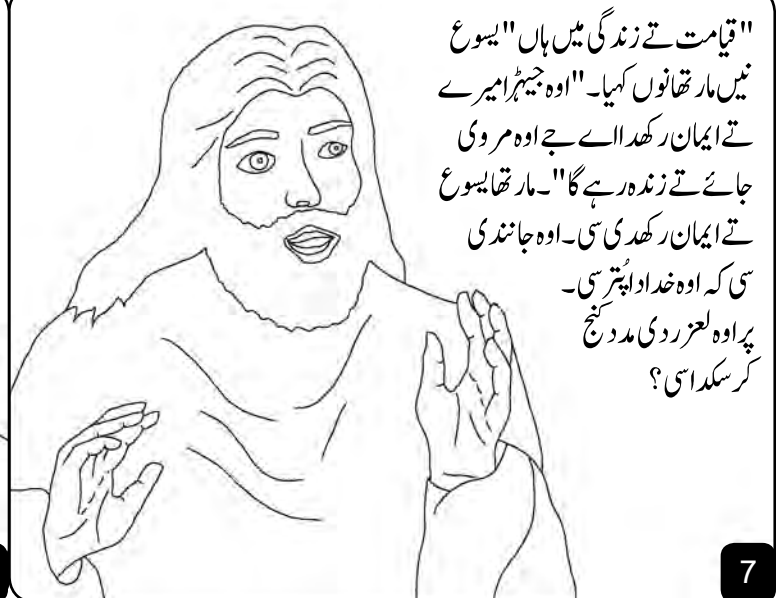 "قیامت تے زندگی میں ہاں" یسوع
نیں مارتھانوں کہیا۔"اوہ جیہڑا میرے
تے ایمان رکھدا اے جے اوہ مر وی
جائے تے زندہ رہے گا"۔مارتھا یسوع
تے ایمان رکھدی سی۔اوہ جانندی
سی کہ اوہ خدا دا پُتر سی۔
پر اوہ لعزر دی مدد کنج
کر سکدا سی؟
7